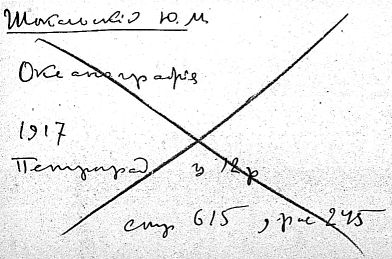 Шокальскій Ю. М.
Океанографія
1917
Петроград ц 12 р
стр 615, рис 245